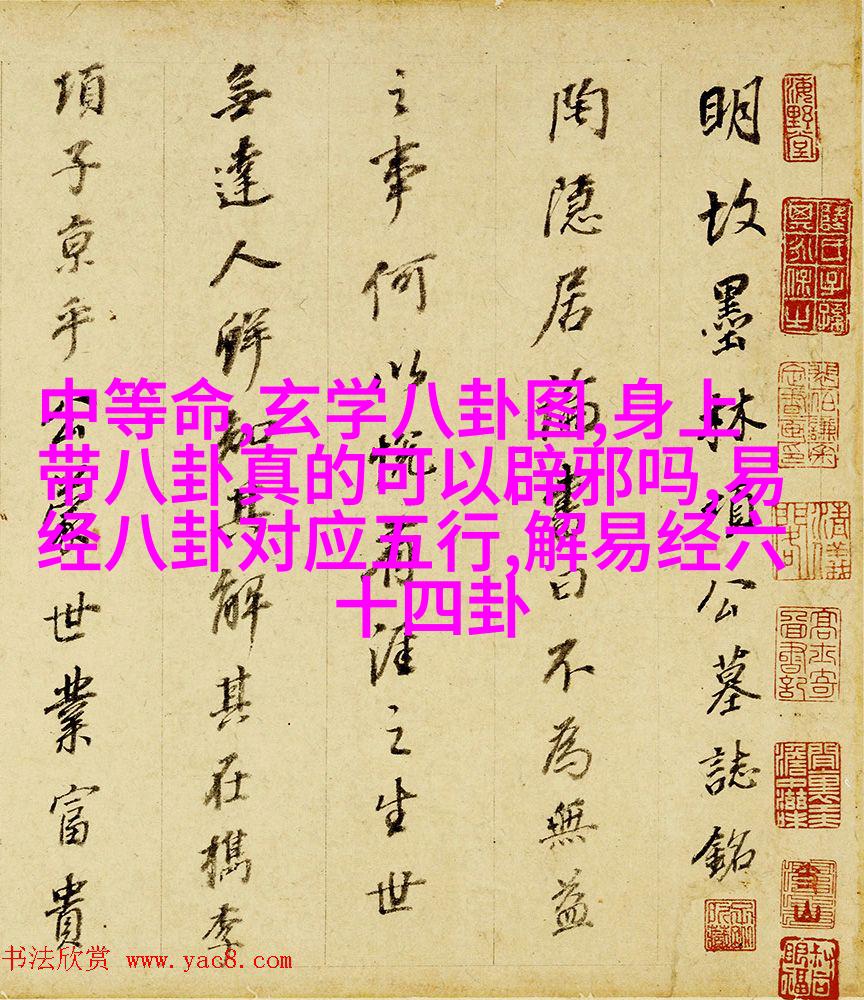 明故墨林項公墓誌銘
陶隱居論書曰不為無益
之事何以悅有涯之生世
無達人鮮知其解其在檇李
項子京乎公累世業富貴
中等命,玄学八卦图,身上
带八卦真的可以辟邪吗,易
经八卦对应五行,解易经六
十四卦
海野堂
书法欣赏 www.yac8.com